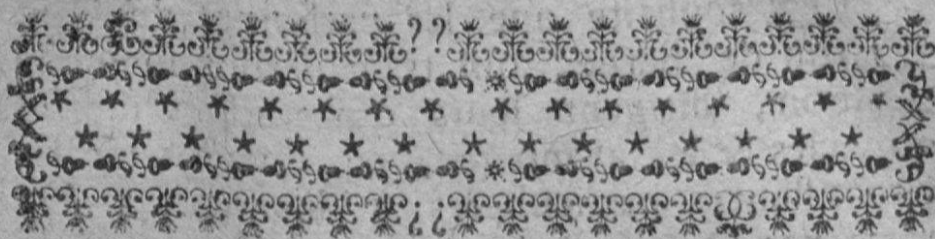 ??
¿¿